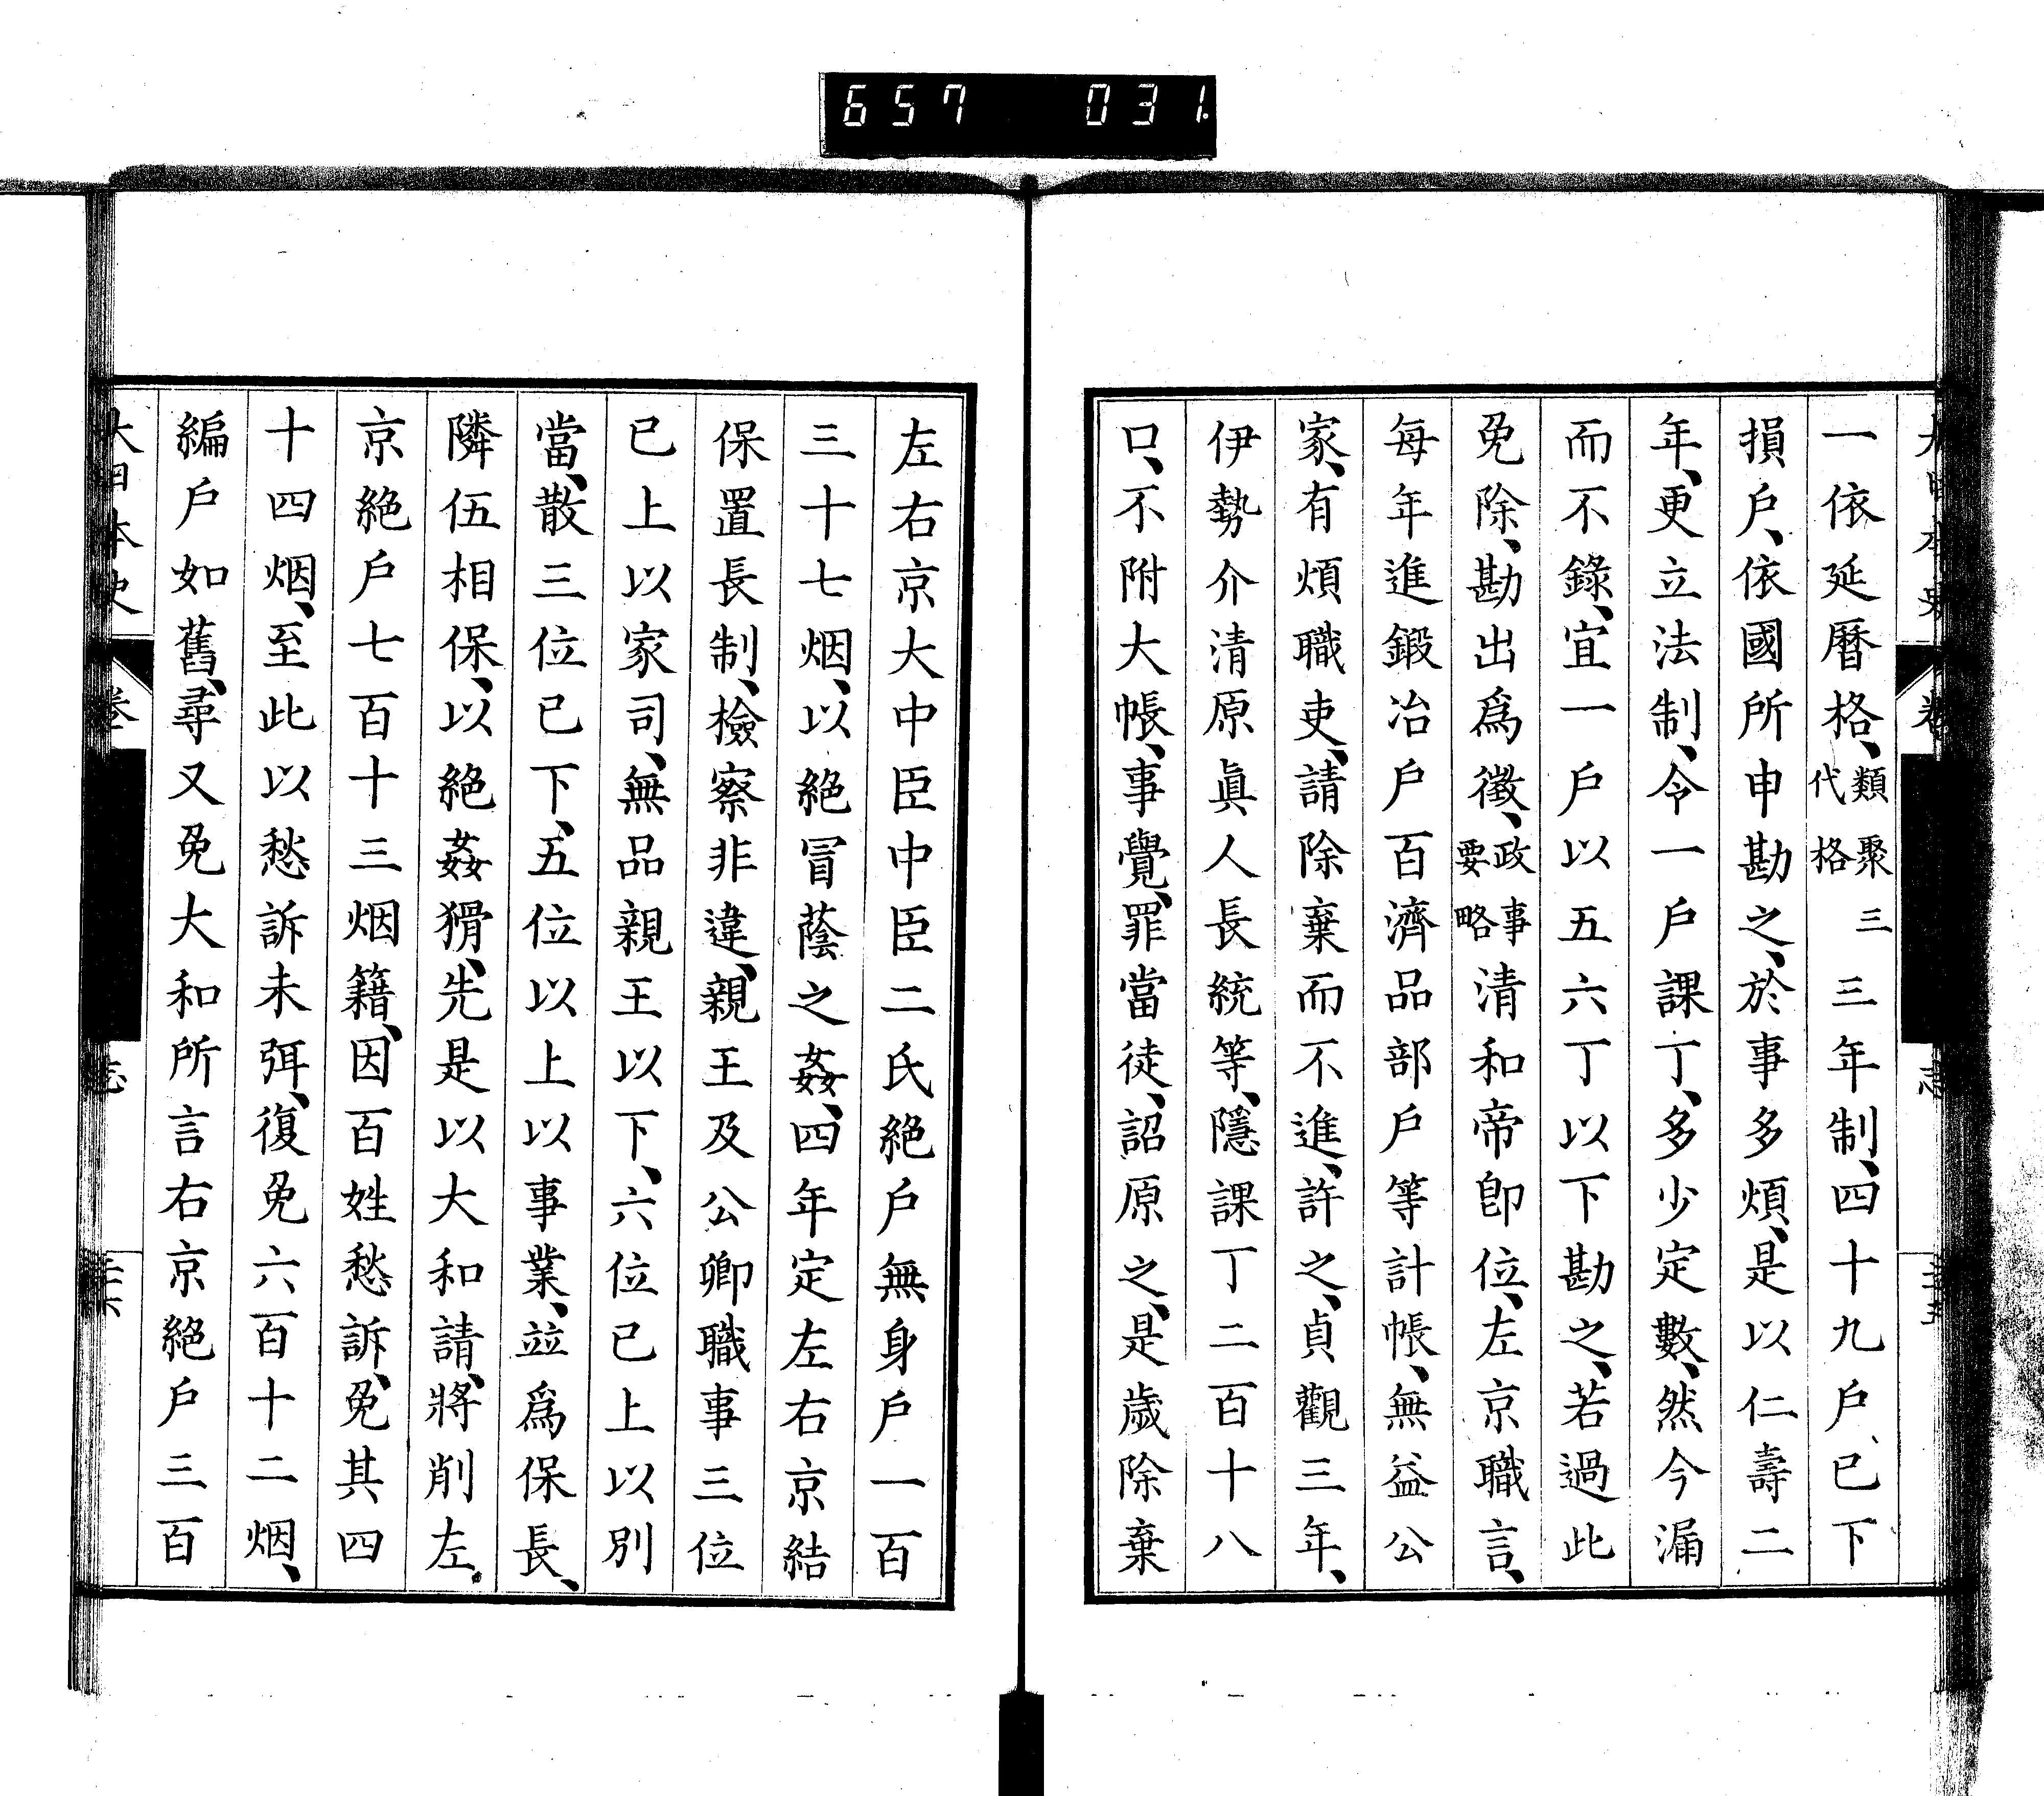 657 031.
一依延曆格、類聚三代格三年制、四十九戶已下
損戶、依國所申勘之、於事多煩、是以仁壽二
年、更立法制、令一戶課丁、多少定數、然今漏
而不錄、宜一戶以五六丁以下勘之、若過此
免除、勘出爲徵、政事要略清和帝卽位、左京職言、
每年進鍛冶戶百濟品部戶等計帳、無益公
家、有煩職吏、請除棄而不進、許之、貞觀三年、
伊勢介清原眞人長統等、隱課丁二百十八
口、不附大帳、事覺、罪當徒、詔原之、是歲除棄
左右京大中臣中臣二氏絕戶無身戶一百
三十七烟、以絕冒蔭之姦、四年定左右京結
保置長制、檢察非違、親王及公卿職事三位
已上以家司、無品親王以下、六位已上以別
當、散三位已下、五位以上以事業、竝爲保長、
隣伍相保、以絕姦猾、先是以大和請、將削左
京絕戶七百十三烟籍、因百姓愁訴、免其四
十四烟、至此以愁訴未弭、復免六百十二烟、
編戶如舊、尋又免大和所言右京絕戶三百
大日本史 卷 志